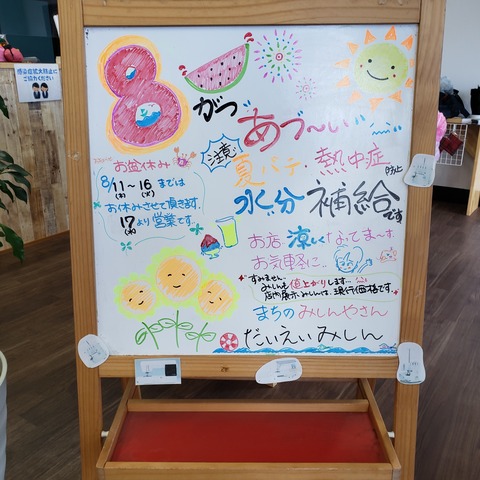 感染症拡大防止に
ご協力ください
8がつ
あづ〜い
注意
夏バテ・熱中症防止
水分補給です
お盆休み
8/11〜16までは
(木) (火)
お休みさせて頂きます。
17より営業です。
(水)
お店涼しくなってま〜す
お気軽に‥
すみません
みしんも値上がりします‥
店内展示みしんは、現行価格です。
まちのみしんやさん
だいえいみしん